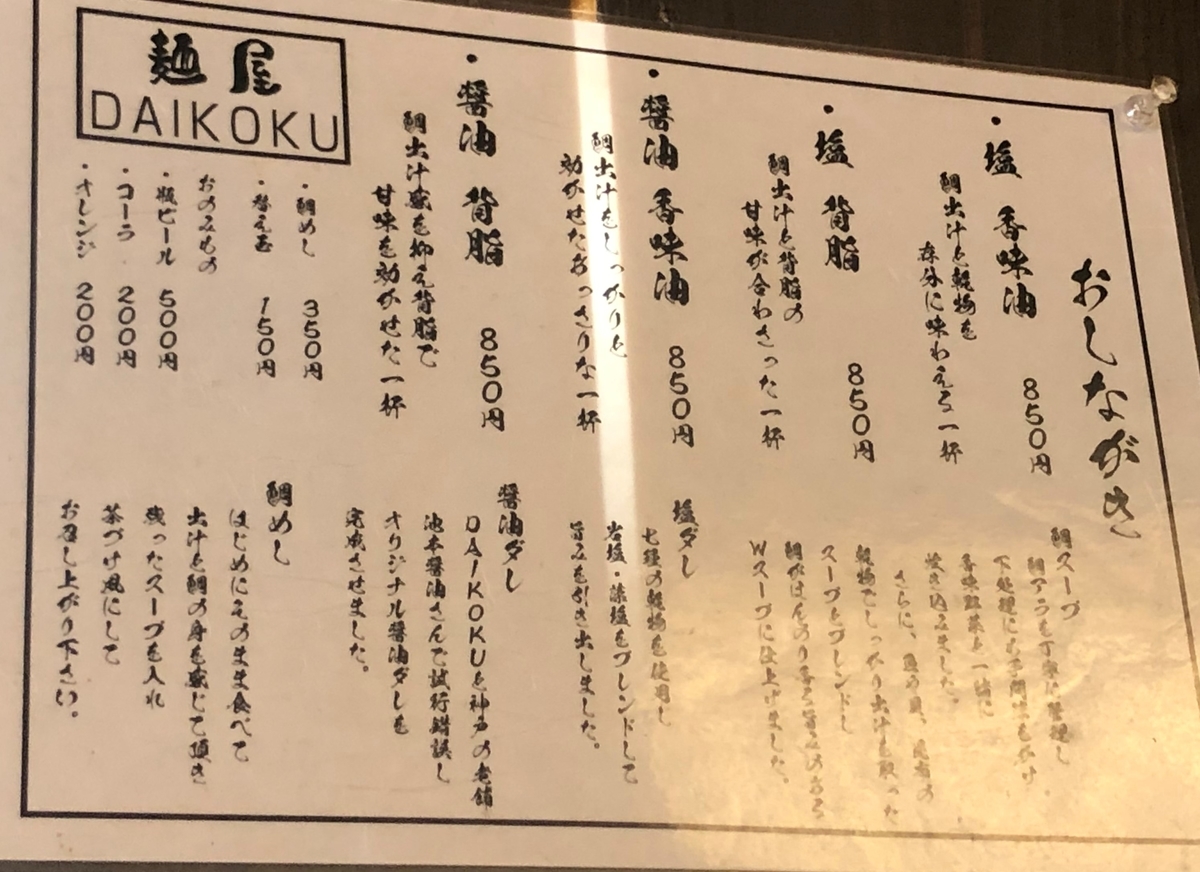 おしながき
・塩 香味油 850円
鯛出汁と乾物を
存分に味わえる一杯
・塩 背脂 850円
鯛出汁と背脂の
甘味が合わさった一杯
・醤油 香味油 850円
鯛出汁をしっかりと
効かせたあっさりな一杯
・醤油 背脂 850円
鯛出汁感を抑え背脂で
甘味を効かせた一杯
麺屋
DAIKOKU
・鯛めし 350円
・替え玉 150円
おのみもの
・瓶ビール 500円
・コーラ 200円
・オレンジ 200円
鯛スープ
鯛アラを丁寧に管理し
下処理にも手間ひまかけ
香味野菜と一緒に
炊き込みました。
さらに、昆布の
乾物でしっかり出汁を取った
スープをブレンドし
鯛がほんのり香る旨みのある
Wスープに仕上げました。
塩ダし
七種の乾物を使用し
岩塩・藻塩をブレンドして
旨みを引き出しました。
醤油ダし
DAIKOKUと神戸の老舗
池本醤油さんで試行錯誤し
オリジナル醤油ダしを
完成させました。
鯛めし
はじめにそのまま食べて
出汁と鯛の身を感じて頂き
残ったスープを入れ
茶づけ風にして
お召し上がり下さい。